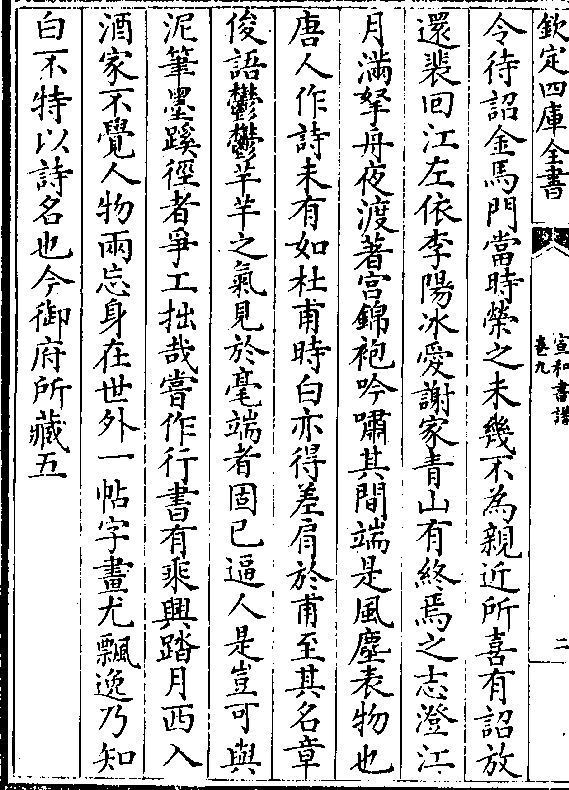 欽定四庫全書
宣和書譜
卷九
二
今待詔金馬門當時榮之未幾不為親近所喜有詔放
還裴回江左依李陽冰愛謝家青山有終焉之志澄江
月滿拏舟夜渡著宫錦袍吟嘯其間端是風塵表物也
唐人作詩未有如杜甫時白亦得差肩於甫至其名章
俊語鬱鬱芊芊之氣見於毫端者固已逼人是豈可與
泥筆墨蹊徑者爭工拙哉嘗作行書有乘興踏月西入
酒家不覺人物兩忘身在世外一帖字畫尤飄逸乃知
白不特以詩名也今御府所藏五